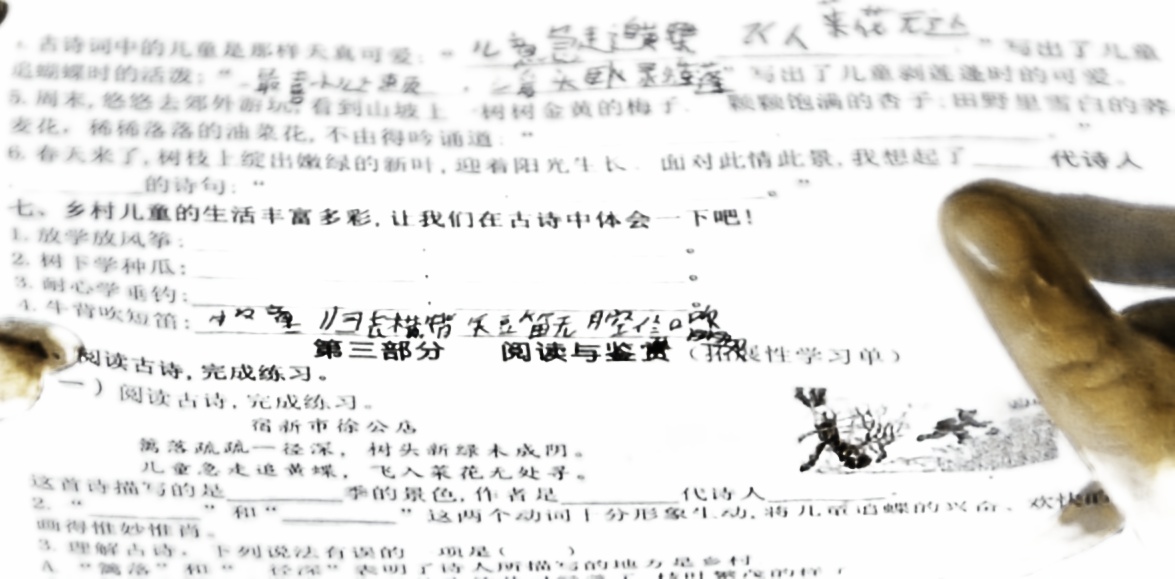 .古诗词中的儿童是那样天真可爱:"儿童急走追黄蝶 飞入菜花无"写出了儿童
追蝴蝶时的活泼;"最喜小,头卧剥莲蓬"写出了儿童剥莲蓬时的可爱。
5.周末,悠悠去郊外游玩,看到山坡上一树树金黄的梅子、一颗颗饱满的杏子;田野里雪白的荞
麦花,稀稀落落的油菜花,不由得吟诵道:"________。"
6.春天来了,树枝上绽出嫩绿的新叶,迎着阳光生长。面对此情此景,我想起了____代诗人
________的诗句:"________。"
七、乡村儿童的生活丰富多彩,让我们在古诗中体会一下吧!
1.放学放风筝:________,________。
2.树下学种瓜:________,________。
3.耐心学垂钓:________,________。
4.牛背吹短笛:牧童归去横背 笛无腔信口吹
第三部分 阅读与鉴赏(拓展性学习单)
阅读古诗,完成练习。
一)阅读古诗,完成练习。
宿新市徐公店
篱落疏疏一径深,树头新绿未成阴。
儿童急走追黄蝶,飞入菜花无处寻。
这首诗描写的是________季的景色,作者是________代诗人________。
2."________"和"________"这两个动词十分形象生动,将儿童追蝶的兴奋、欢快的
画得惟妙惟肖。
3.理解古诗。下列说法有误的一项是( )
A."篱落"和"径深"表明了诗人所描写的地方是乡村